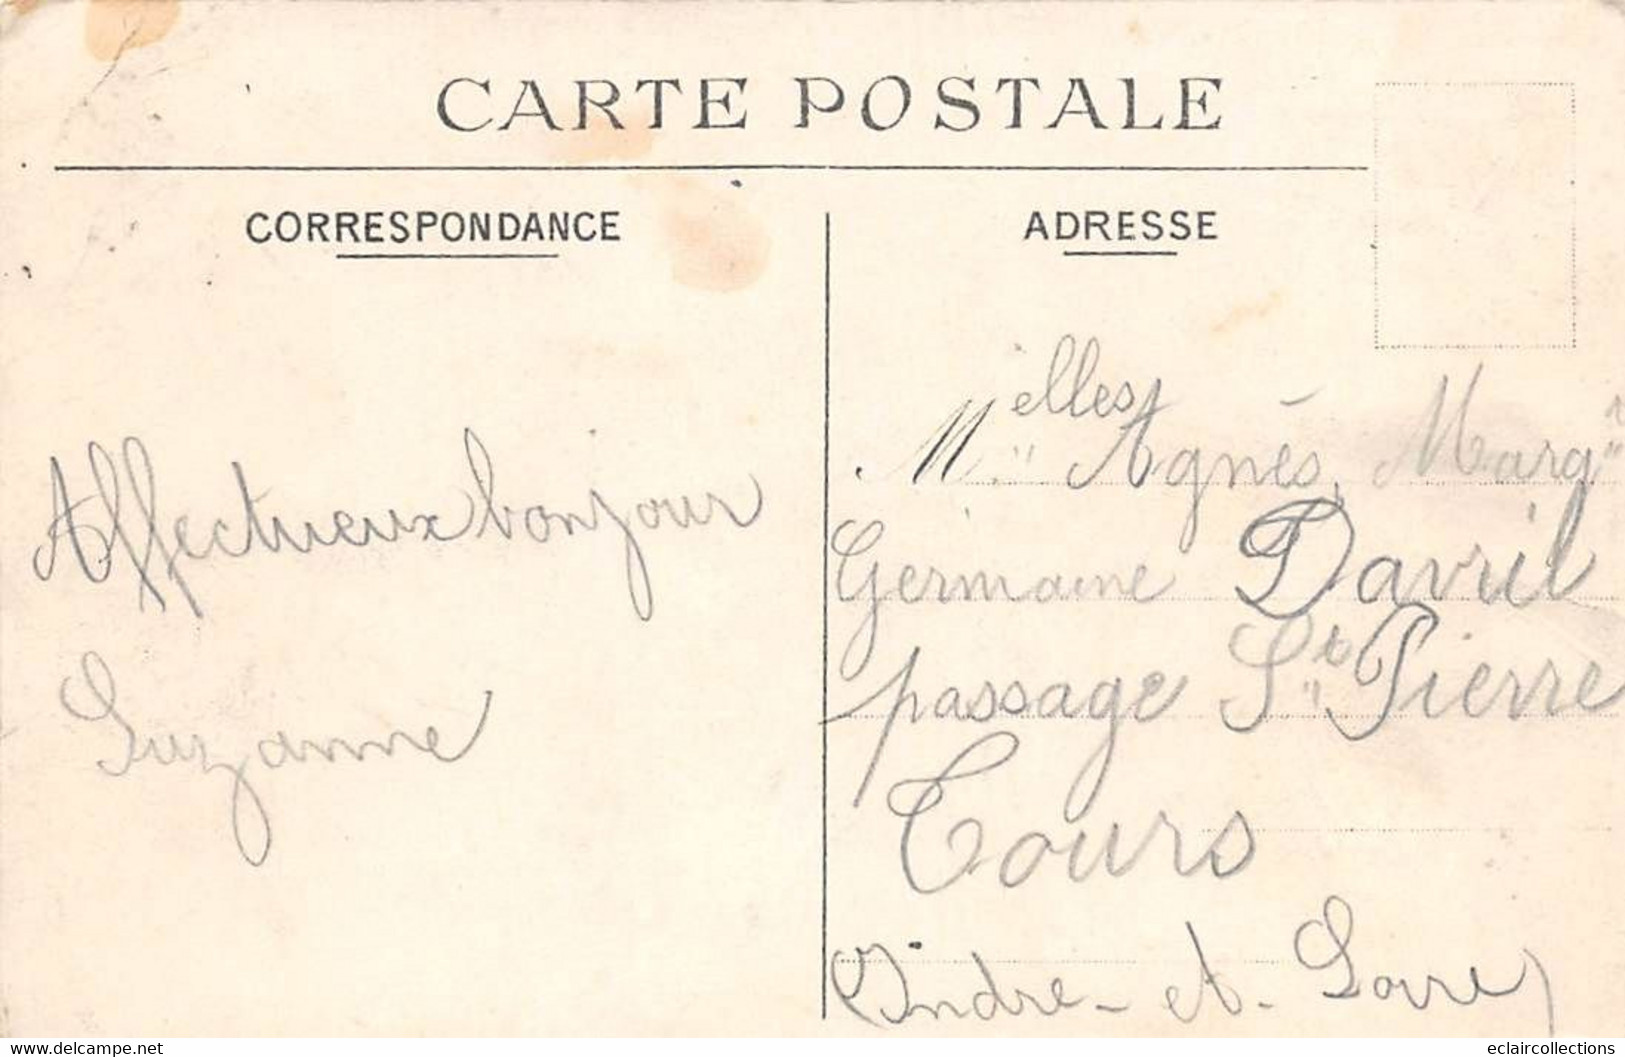 CARTE POSTALE
CORRESPONDANCE
ADRESSE
Affectueux bonjour
Suzanne
Melles Agnès, Margte
Germaine Davril
passage St Pierre
Tours
(Indre-et-Loire)
www.delcampe.net
eclaircollections